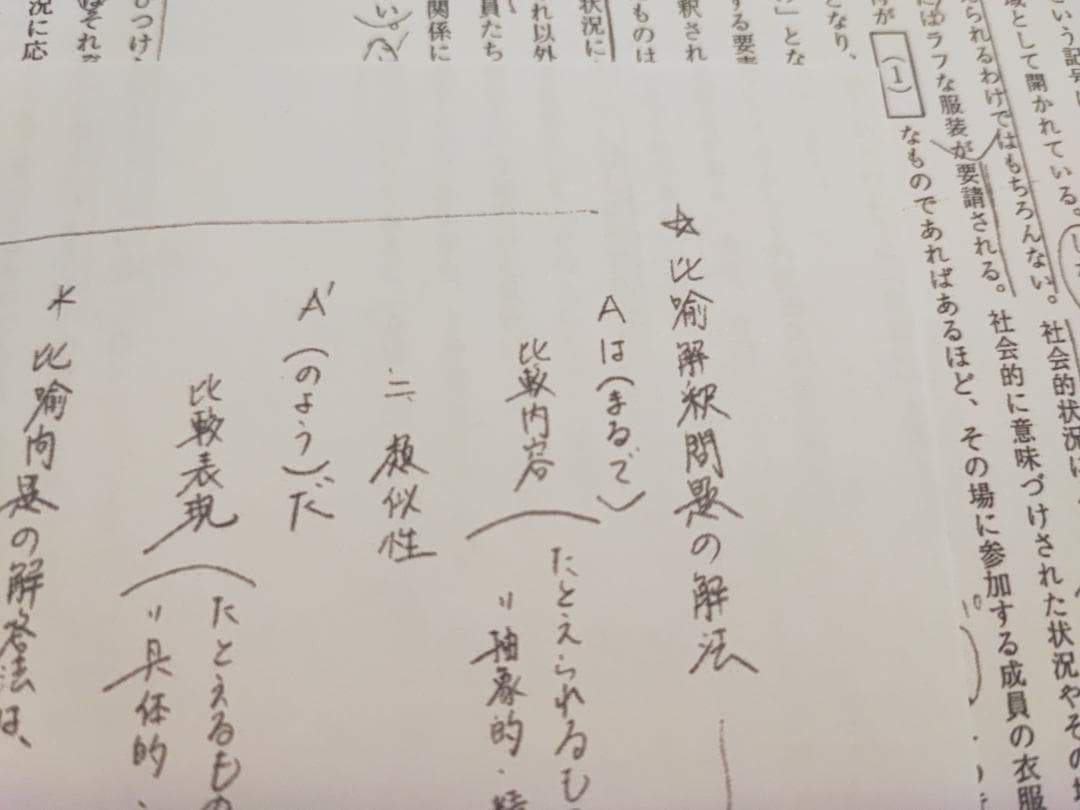 という記号
域として開かれている。
えられるわけではもちろんない。社会的状況
はラフな服装が要請される。社会的に意味づけされた状況やその
が(1)なものであればあるほど、その場に参加する成員の衣服
となり、
」とな
する要
釈され
ものは
状況に
れ以外
員たち
関係に
い。
つけ
はそれ
況に応
☆比喩解釈問題の解法
Aは(まるで)
比較内容(たとえられるも
=抽象的・
=類似性
A′(のよう)だ
比較表現(たとえるもの
=具体的・
*比喩問題の解答法は、